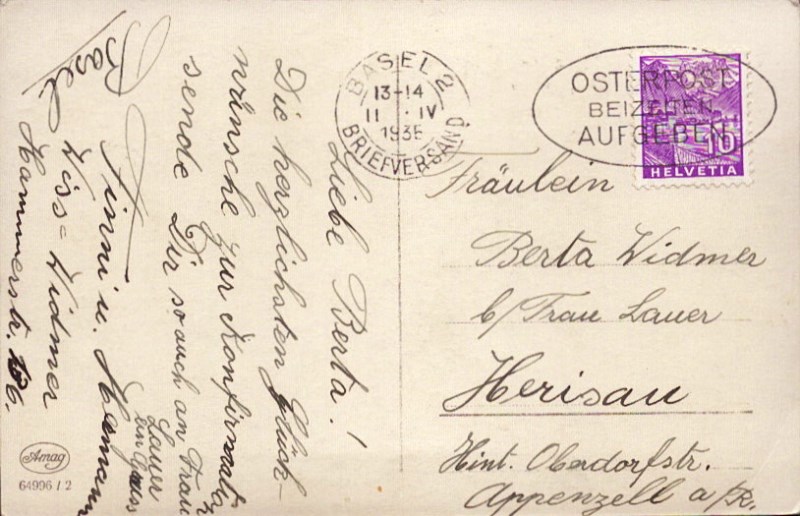 Liebe Berta!
Die herzlichsten Glück-
wünsche zur Konfirmation
sende Dir so auch an Frau
Lauer
ein Gruss
Finni u. Hermann
Viss-Widmer
Hammerstr. 136.
Basel
BASEL 2
13-14
11. IV
1935
BRIEFVERSAND
OSTERPOST
BEIZEITEN
AUFGEBEN
10
HELVETIA
Fräulein
Berta Widmer
b/Frau Lauer
Herisau
Hint. Oberdorfstr.
Appenzell a/Rh.
Amag
64996 / 2